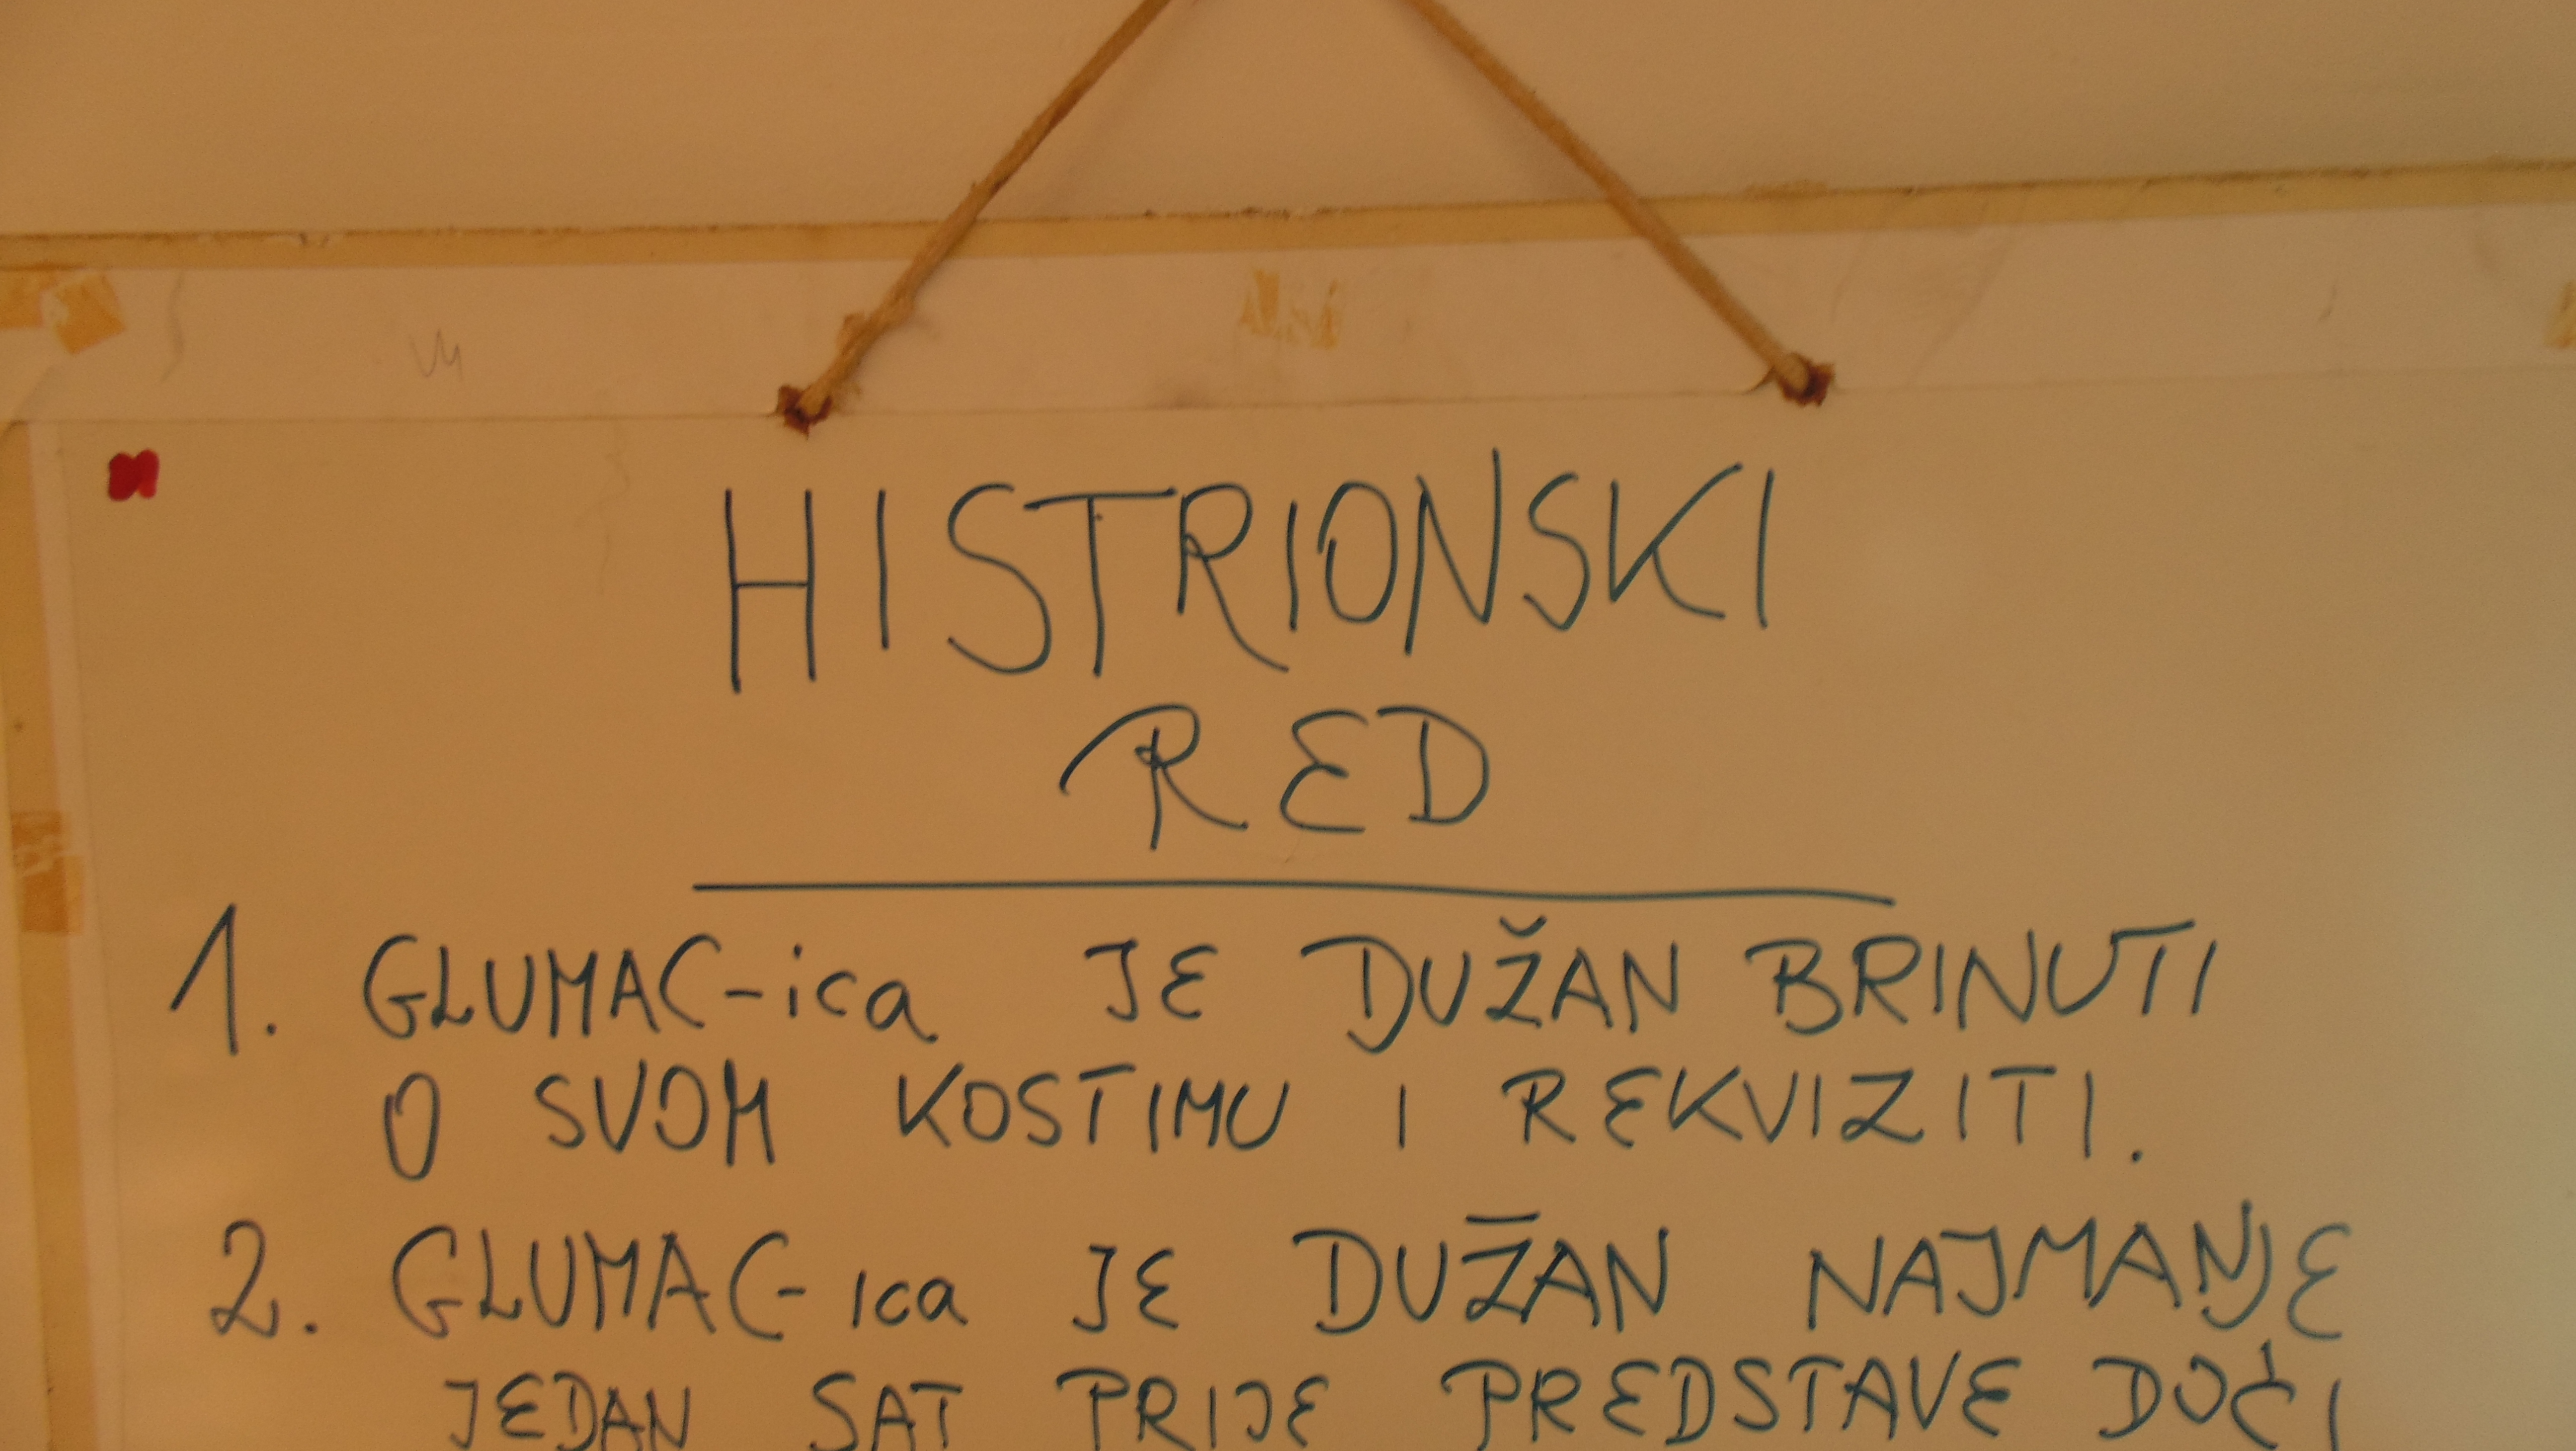 HISTRIONSKI
RED
1. GLUMAC-ica JE DUŽAN BRINUTI
O SVOM KOSTIMU I REKVIZITI.
2. GLUMAC-ica JE DUŽAN NAJMANJE
JEDAN SAT PRIJE PREDSTAVE DOĆI